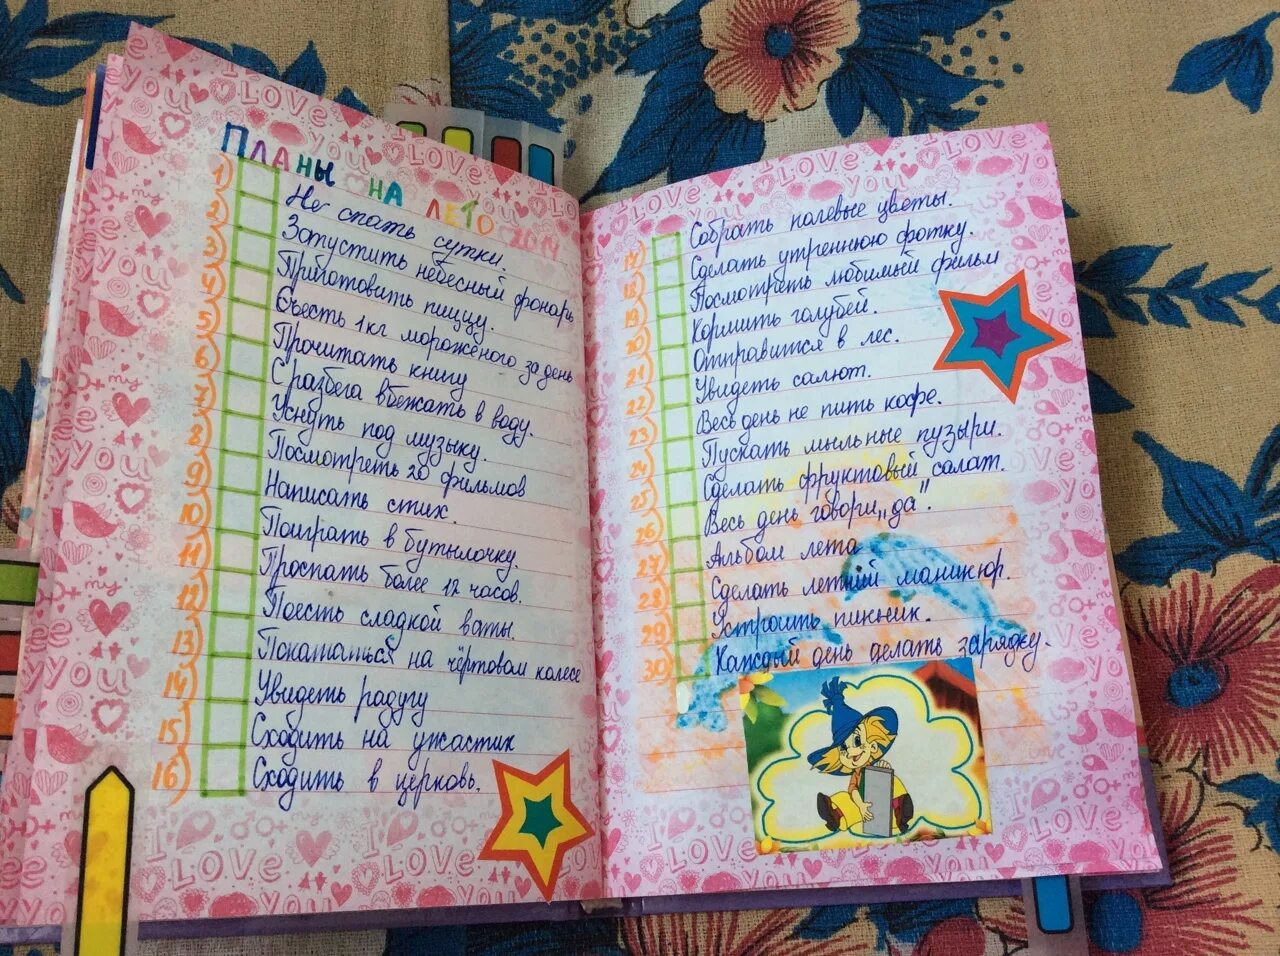 Планы на лето 2014
1) Не спать сутки.
2) Запустить небесный фонарь
3) Приготовить пиццу.
4) Съесть 1 кг мороженого за день
5) Прочитать книгу
6) С разбега вбежать в воду.
7) Уснуть под музыку.
8) Посмотреть 20 фильмов
9) Написать стих.
10) Поиграть в бутылочку.
11) Проспать более 12 часов.
12) Поесть сладкой ваты.
13) Покататься на чёртовом колесе
14) Увидеть радугу
15) Сходить на ужастик
16) Сходить в церковь.
17) Собрать полевые цветы.
18) Сделать утреннюю фотку.
19) Посмотреть любимый фильм
20) Кормить голубей.
21) Отправится в лес.
22) Увидеть салют.
23) Весь день не пить кофе.
24) Пускать мыльные пузыри.
25) Сделать фруктовый салат.
26) Весь день говори „да".
27) Альбом лета
28) Сделать летний маникюр.
29) Устроить пикник.
30) Каждый день делать зарядку.
I LOVE you